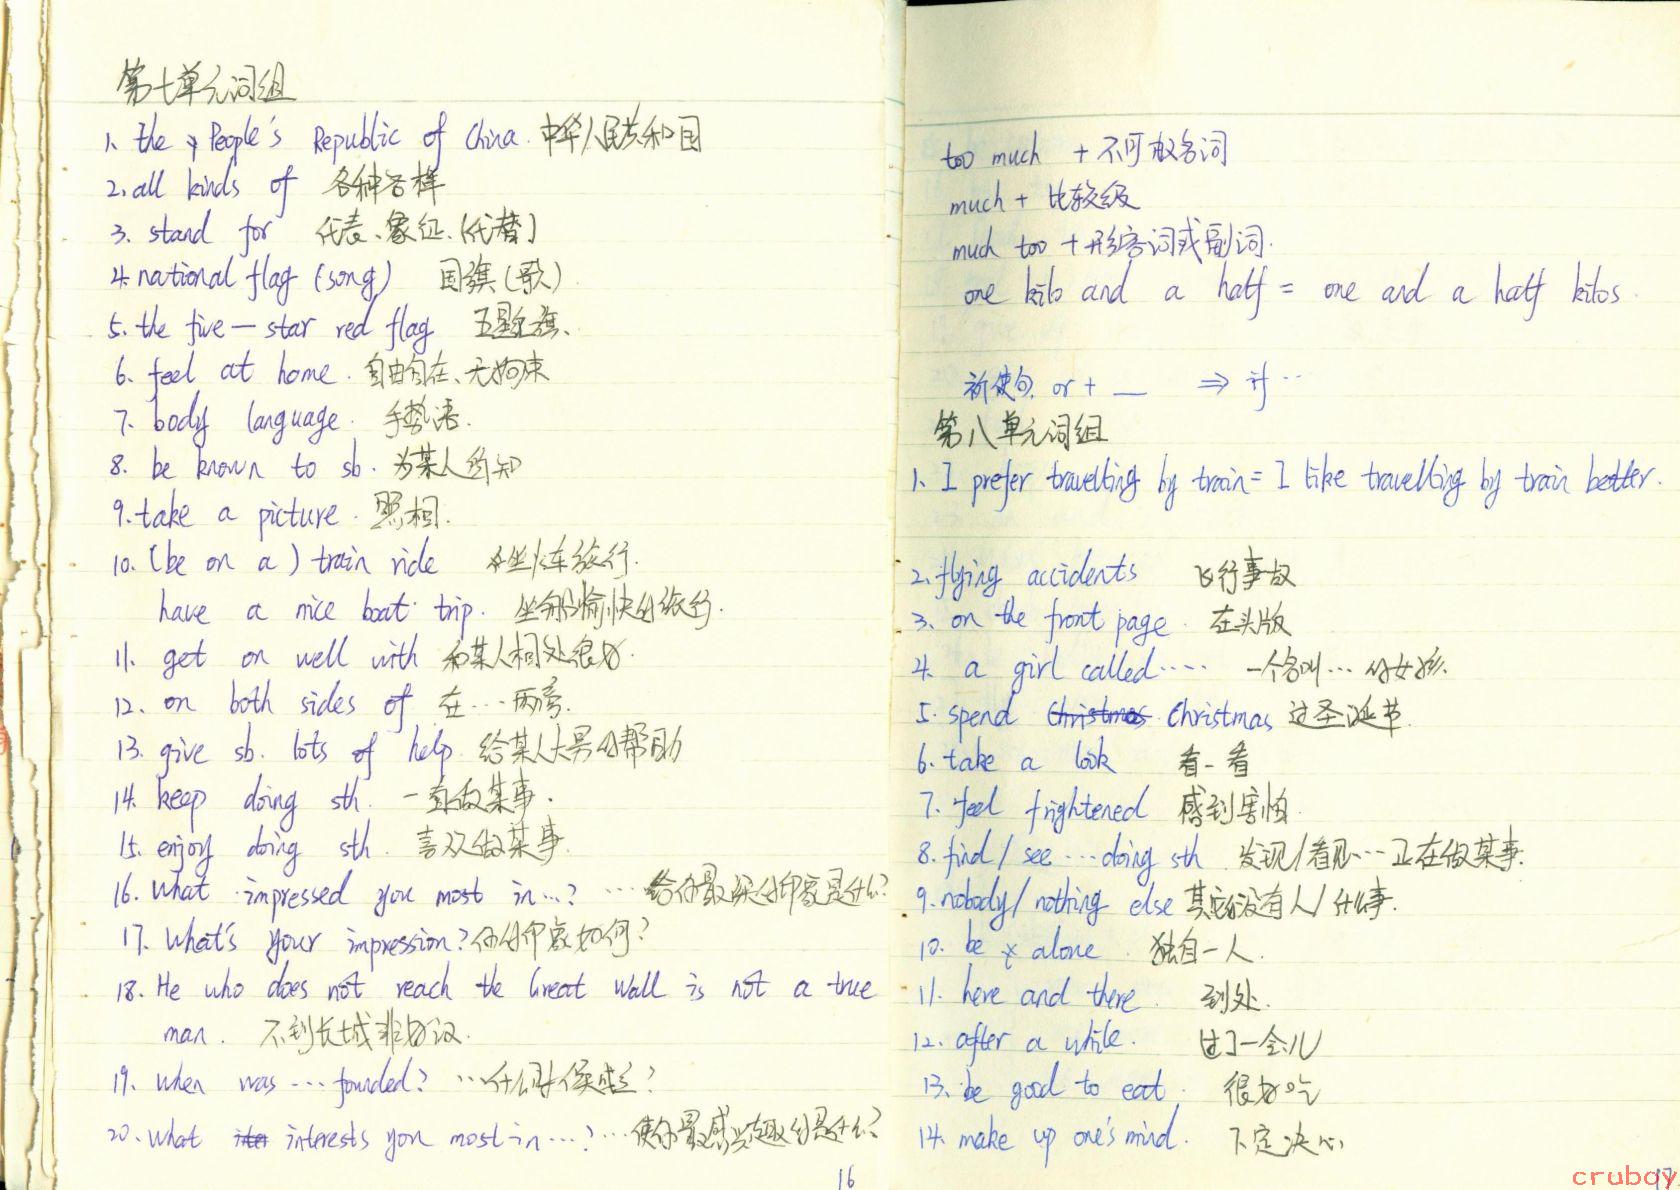 第七单元词组
1. the People's Republic of China. 中华人民共和国
2. all kinds of 各种各样
3. stand for 代表、象征、(代替)
4. national flag (song) 国旗(歌)
5. the five-star red flag 五星红旗.
6. feel at home. 自由自在、无拘束
7. body language. 手势语.
8. be known to sb. 为某人所知
9. take a picture. 照相.
10. (be on a) train ride 坐火车旅行.
have a nice boat trip. 坐船愉快的旅行.
11. get on well with 和某人相处很好.
12. on both sides of 在…两旁.
13. give sb. lots of help. 给某人大力的帮助
14. keep doing sth. 一直做某事.
15. enjoy doing sth. 喜欢做某事.
16. What impressed you most in…? …给你最深的印象是什么?
17. What's your impression? 你的印象如何?
18. He who does not reach the Great Wall is not a true
man. 不到长城非好汉.
19. When was … founded? …什么时候成立?
20. What interests you most in …? …使你最感兴趣的是什么?
16
too much + 不可数名词
much + 比较级
much too + 形容词或副词.
one kilo and a half = one and a half kilos.
祈使句, or + __ ⇒ if …
第八单元词组
1. I prefer travelling by train = I like travelling by train better.
2. flying accidents 飞行事故
3. on the front page. 在头版
4. a girl called …… 一个名叫…的女孩.
5. spend Christmas 过圣诞节.
6. take a look 看一看
7. feel frightened 感到害怕.
8. find / see … doing sth 发现/看见…正在做某事.
9. nobody / nothing else 其它没有人/什么事.
10. be alone. 独自一人.
11. here and there. 到处.
12. after a while. 过了一会儿
13. be good to eat. 很好吃
14. make up one's mind. 下定决心
17
cruboy